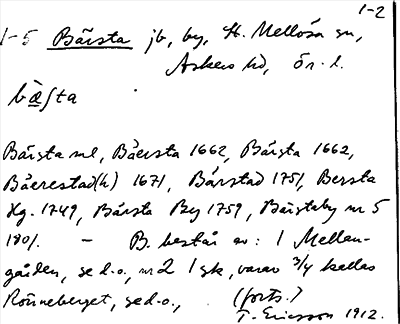 1-2
1-5 Bärsta jb, by, St. Mellösa sn,
Askers hd, Ör. l.
bæ̀ʃta
Bärsta ml, Bäersta 1662, Bärsta 1662,
Bäerestad(h) 1671, Bärstad 1751, Bersta
Hg. 1749, Bärsta By 1759, Bärstaby nr 5
1801. — B. består av: 1 Mellen-
gården, se d.o., nr 2 1 sk, varav 3/4 kallas
Rönneberget, se d.o., (forts.)
T. Ericsson 1912.